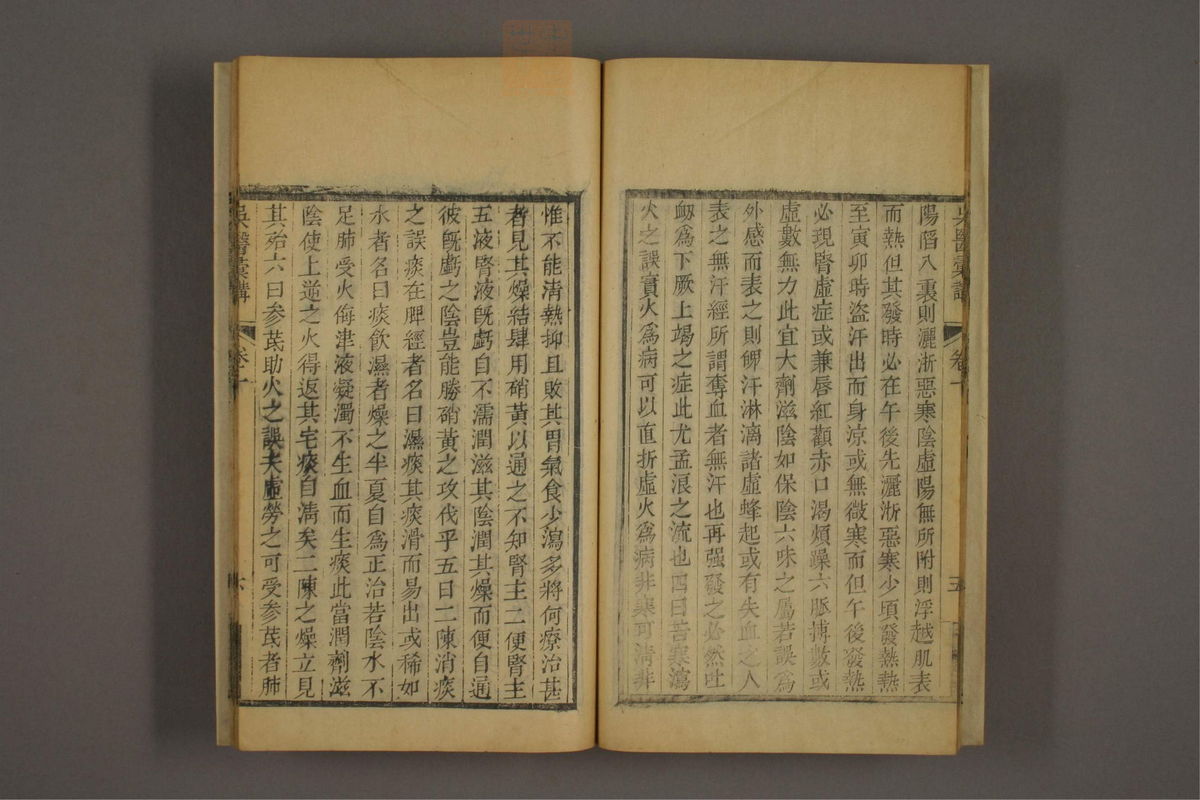 吳醫彙講
卷十
五
陽陷入裏則灑淅惡寒陰虛陽無所附則浮越肌表
而熱但其發時必在午後先灑淅惡寒少頃發熱熱
至寅卯時盜汗出而身涼或無微寒而但午後發熱
必現腎虛症或兼唇紅顴赤口渴煩躁六脈搏數或
虛數無力此宜大劑滋陰如保陰六味之屬若誤為
外感而表之則魄汗淋漓諸虛蜂起或有失血之人
表之無汗經所謂奪血者無汗也再强發之必然吐
衂爲下厥上竭之症此尤孟浪之流也四曰苦寒瀉
火之誤實火爲病可以直折虛火爲病非寒可淸非
惟不能淸熱抑且敗其胃氣食少瀉多將何療治甚
者見其燥結肆用硝黃以通之不知腎主二便腎主
五液腎液旣虧自不濡潤滋其陰潤其燥而便自通
彼旣虧之陰豈能勝硝黃之攻伐乎五曰二陳消痰
之誤痰在脾經者名曰濕痰其痰滑而易出或稀如
水者名曰痰飲濕者燥之半夏自爲正治若陰水不
足肺受火侮津液凝濁不生血而生痰此當潤劑滋
陰使上逆之火得返其宅痰自淸矣二陳之燥立見
其殆六曰参芪助火之誤夫虛勞之可受参芪者肺
吳醫彙講
卷十
六